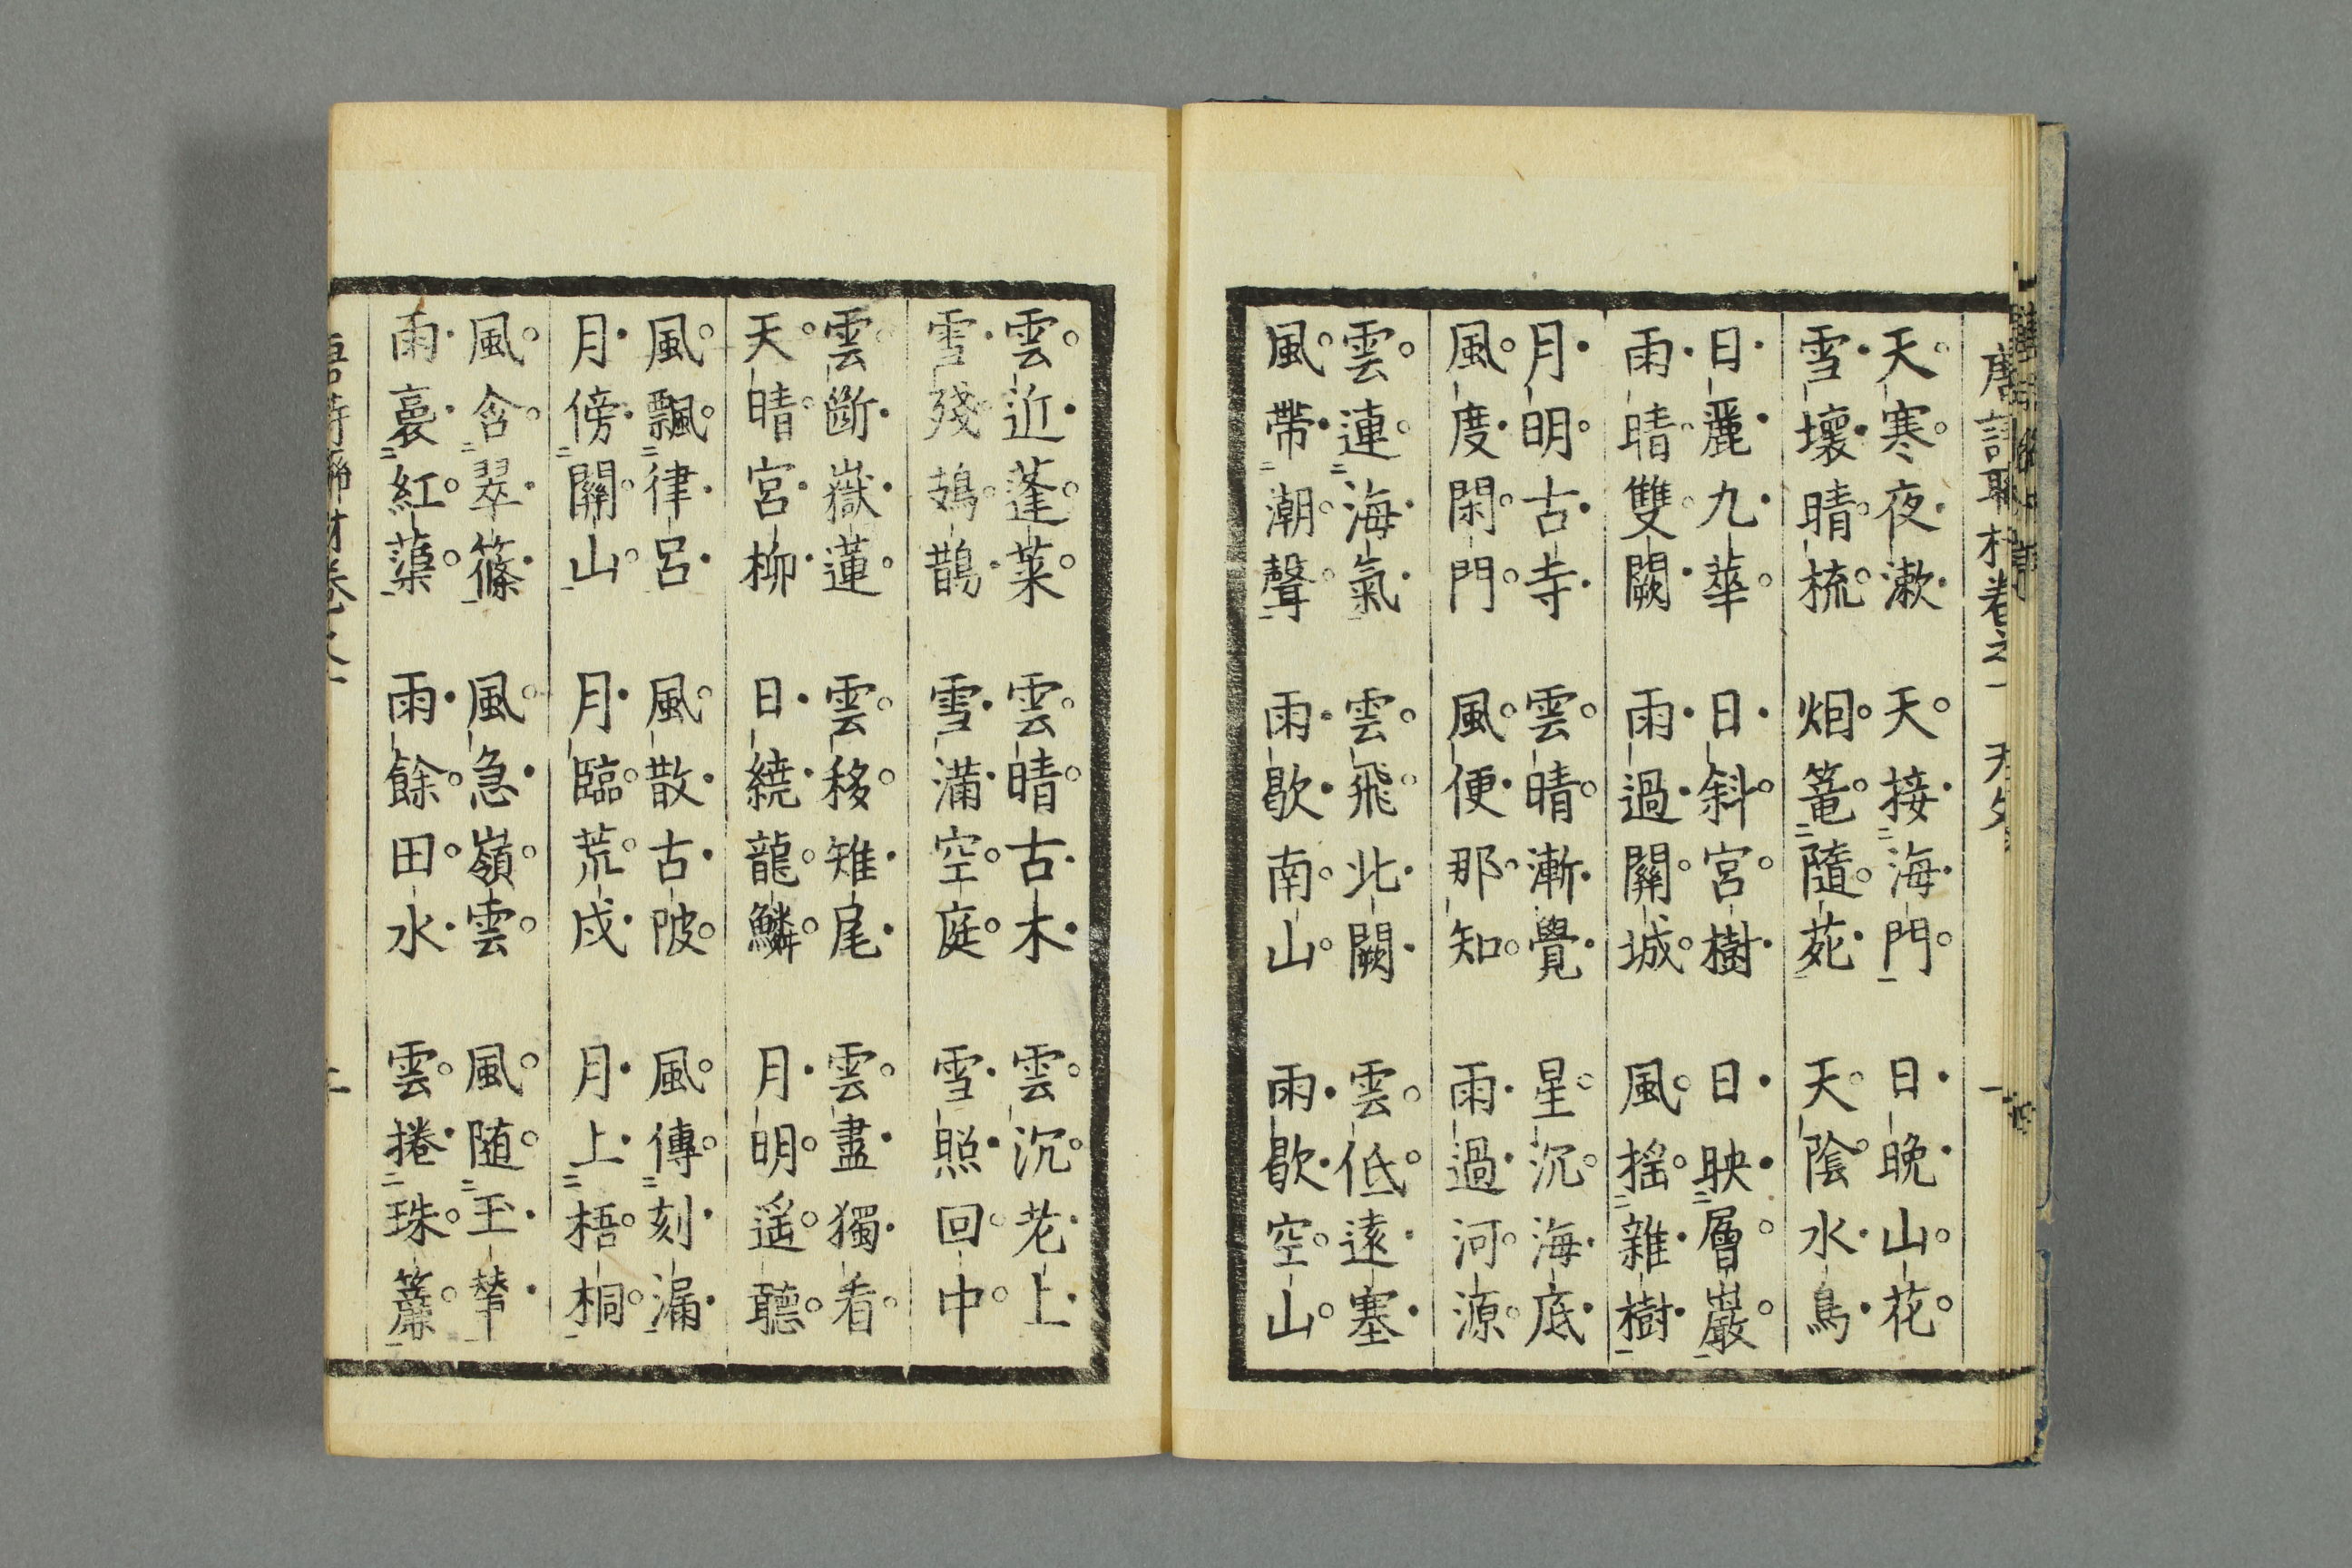 天寒夜漱 天接海門 日晚山花
雪壞晴梳 烟篭隨苑 天陰水鳥
日麗九華 日斜宮樹 日映層巖
雨晴雙闕 雨過關城 風搖雜樹
月明古寺 雲晴漸覺 星沉海底
風度閑門 風便那知 雨過河源
雲連海氣 雲飛北闕 雲低遠塞
風帶潮聲 雨歇南山 雨歇空山
雲近蓬莱 雲晴古木 雲沉老上
雪殘鳷鵲 雪滿空庭 雪照回中
雲斷嶽蓮 雲移雉尾 雲盡獨看
天晴宮柳 日繞龍鱗 月明遥聽
風飄律呂 風散古陂 風傳刻漏
月傍關山 月臨荒戍 月上梧桐
風含翠篠 風急嶺雲 風随玉輦
雨裛紅蕖 雨餘田水 雲捲珠簾